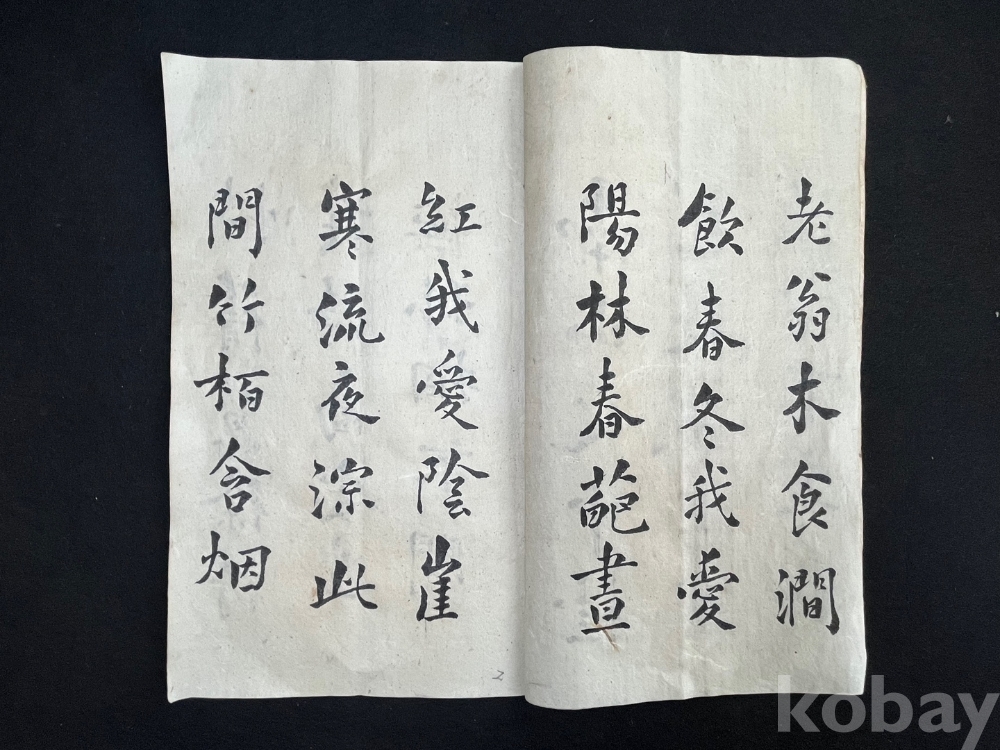 老翁木食澗
飲春冬我愛
陽林春葩晝
紅我愛陰崖
寒流夜淙此
間竹栢含烟
2
kobay